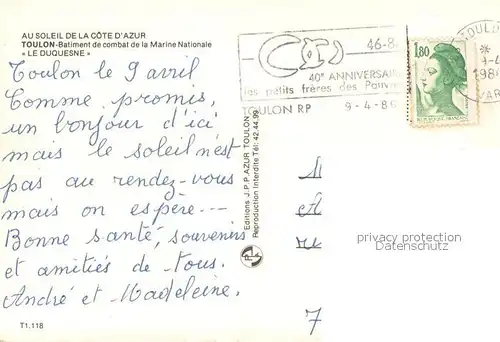 AU SOLEIL DE LA CÔTE D'AZUR
TOULON-Batiment de combat de la Marine Nationale
« LE DUQUESNE »
Toulon le 9 avril
Comme promis,
un bonjour d'ici
mais le soleil n'est
pas au rendez-vous
mais on espère---
Bonne santé, souvenirs
et amitiés de tous.
André et Madeleine.
T1.118
Editions J.P.P. AZUR TOULON
Reproduction Interdite Tél: 42.44.99
46-8
40e ANNIVERSAI
les petits frères des Pauvre
TOULON RP 9-4-86
1,80
TOULO
privacy protection
Datenschutz
M
7